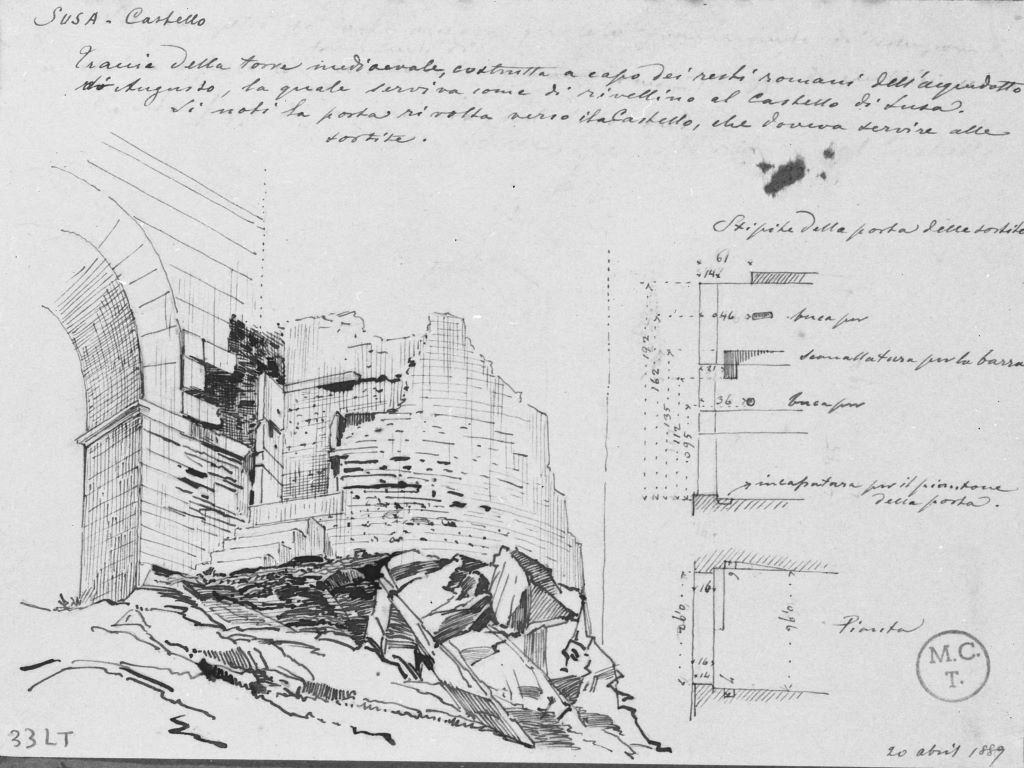 SUSA - Castello
Traccie della torre mediaevale, costrutta a capo dei resti romani dell'acquedotto
di Augusto, la quale serviva come di rivellino al Castello di Susa.
Si noti la porta rivolta verso il Castello, che doveva servire alle
sortite.
Stipite della porta delle sortite
61
14
46 buca per
scanallatura per la barra
21
36 buca per
192
162
135
112
095
incassatura per il piantone
della porta.
16
092
096
Pianta
16
14
M.C.
T.
33 LT
20 abril 1889